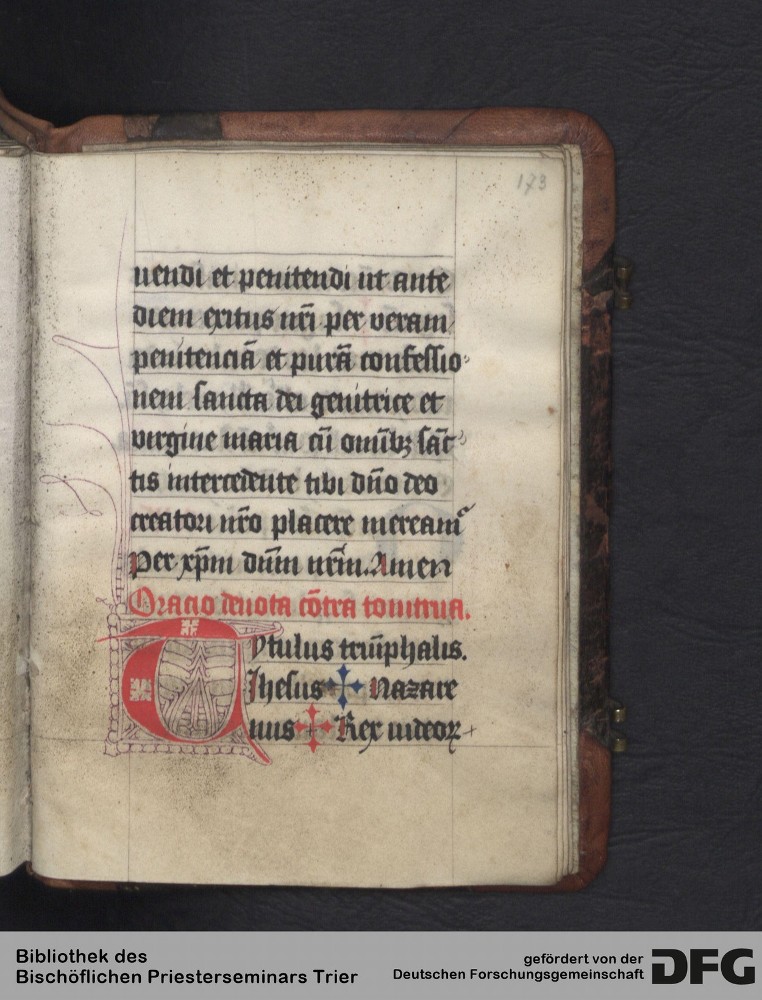 173
uendi et penitendi ut ante
diem exitus nr̄i per veram
penitenciā et purā confessio
nem sancta dei genitrice et
virgine maria cū om̄ibꝫ sāc
tis intercedente tibi dn̄o deo
creatori nr̄o placere mereamᷣ
Per xp̄m dn̄m nr̄m. Amen
Oracio deuota cōtra tonitrua.
Tytulus triūphalis.
Jhesus ✢ Nazare
nus ✢ Rex iudeoꝝ +
Bibliothek des
Bischöflichen Priesterseminars Trier
gefördert von der
Deutschen Forschungsgemeinschaft
DFG